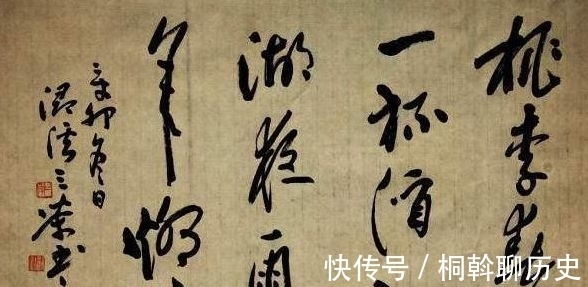 桃李春
一杯酒
湖夜雨
年燈
辛卯冬日
溪三书
快传号 / 桐斡聊历史